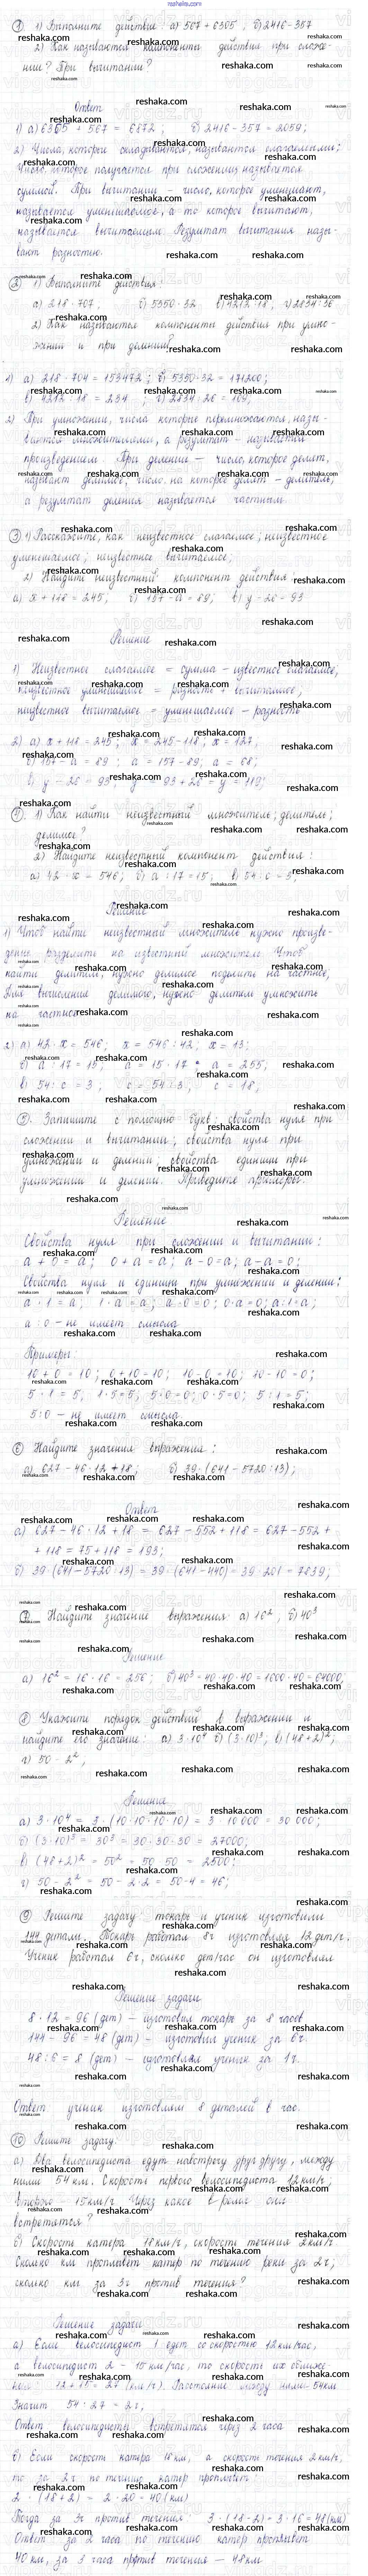 reshaka.com
① 1) Выполните действие: а) 567 + 6305; б) 2416 - 357
2) Как называются компоненты действия при сложе-
нии? При вычитании?
Ответ
1) а) 6305 + 567 = 6872; б) 2416 - 357 = 2059;
2) Числа, которые складываются, называются слагаемыми;
Число, которое получается при сложении называется
суммой. При вычитании - число, которое уменьшают,
называется уменьшаемое, а то которое вычитают,
называется вычитаемым. Результат вычитания назы-
вают разностью.
② 1) Выполните действия:
а) 318 · 704, б) 5350 · 32 в) 4212 : 18, г) 2834 : 26
2) Как называются компоненты действия при умно-
жении и при делении?
1) а) 218 · 704 = 153472; б) 5350 · 32 = 171200;
в) 4212 : 18 = 234; г) 2834 : 26 = 109,
2) При умножении, числа которые перемножаются, назы-
ваются множителями, а результат - называют
произведением. При деление - число, которое делят,
называют делимое, число, на которое делят - делитель,
а результат деления называется частным.
③ 1) Расскажите, как неизвестное слагаемое; неизвестное
уменьшаемое; неизвестное вычитаемое;
2) Найдите неизвестный компонент действия:
а) x + 118 = 245, б) 157 - a = 89; в) y - 26 = 93
Решение
1) Неизвестное слагаемое = сумма - известное слагаемое;
неизвестное уменьшаемое = разность + вычитаемое,
неизвестное вычитаемое = уменьшаемое - разность
2) а) x + 118 = 245; x = 245 - 118; x = 127,
б) 157 - a = 89; a = 157 - 89; a = 68;
в) y - 26 = 93 y = 93 + 26 = y = 119;
④ 1) Как найти неизвестный множитель; делитель;
делимое?
2) Найдите неизвестный компонент действия:
а) 42 · x = 546; б) a : 17 = 15; в) 54 : c = 3;
Решение
1) Чтоб найти неизвестный множитель нужно произве-
дение разделить на известный множитель. Чтоб
найти делитель, нужно делимое поделить на частное,
Для вычисления делимого, нужно делитель умножить
на частное.
2) а) 42 · x = 546; x = 546 : 42; x = 13;
б) a : 17 = 15; a = 15 · 17 a = 255,
в) 54 : c = 3; c = 54 : 3; c = 18;
⑤. Запишите с помощью букв: свойства нуля при
сложении и вычитании; свойства нуля при
умножении и делении; свойства единицы при
умножении и делении. Приведите примеры.
Решение
Свойства нуля при сложении и вычитании:
a + 0 = a; 0 + a = a; a - 0 = a; a - a = 0;
Свойства нуля и единицы при умножении и делении:
a · 1 = a; 1 · a = a; a · 0 = 0; 0 · a = 0; a : 1 = a;
a : 0 - не имеет смысла
Примеры:
10 + 0 = 10; 0 + 10 = 10; 10 - 0 = 10; 10 - 10 = 0;
5 · 1 = 5; 1 · 5 = 5; 5 · 0 = 0; 0 · 5 = 0; 5 : 1 = 5;
5 : 0 - не имеет смысла
⑥ Найдите значения выражения:
а) 627 - 46 · 12 + 18; б) 39 · (641 - 5720 : 13);
Ответ
а) 627 - 46 · 12 + 18 = 627 - 552 + 118 = 627 - 552 +
+ 118 = 75 + 118 = 193;
б) 39 · (641 - 5720 : 13) = 39 · (641 - 440) = 39 · 201 = 7839;
⑦ Найдите значение выражения а) 16²; б) 40³
Решение
а) 16² = 16 · 16 = 256; б) 40³ = 40 · 40 · 40 = 1600 · 40 = 64000;
⑧ Укажите порядок действий в выражении и
найдите его значение: а) 3 · 10⁴ б) (3 · 10)³, в) (48 + 2)²,
г) 50 - 2²;
Решение
а) 3 · 10⁴ = 3 · (10 · 10 · 10 · 10) = 3 · 10 000 = 30 000;
б) (3 · 10)³ = 30³ = 30 · 30 · 30 = 27000;
в) (48 + 2)² = 50² = 50 · 50 = 2500;
г) 50 - 2² = 50 - 2 · 2 = 50 - 4 = 46;
⑨ Решите задачу: токарь и ученик изготовили
144 детали. Токарь работал 8ч изготовляя 12 дет/ч.
Ученик работал 6ч, сколько дет/час он изготовлял
Решение задачи
8 · 12 = 96 (дет) - изготовил токарь за 8 часов
144 - 96 = 48 (дет) - изготовил ученик за 6ч.
48 : 6 = 8 (дет) - изготовлял ученик за 1ч.
Ответ ученик изготовлял 8 деталей в час.
⑩ Решите задачу:
а) Два велосипедиста едут навстречу друг другу, между
ними 54 км. Скорость первого велосипедиста 12 км/ч,
второго 15 км/ч. Через какое время они
встретятся?
б) Скорость катера 18 км/ч, скорость течения 2 км/ч
Сколько км проплывет катер по течению реки за 2ч;
сколько км за 3ч против течения?
Решение задачи
а) Если велосипедист 1 едет со скоростью 12 км/час,
а велосипедист 2 - 15 км/час, то скорость их сближе-
ния 12 + 15 = 27 (км/ч). Расстояние между ними 54 км
Значит 54 : 27 = 2ч,
Ответ велосипедисты встретятся через 2 часа
б) Если скорость катера 18 км, а скорость течения 2 км/ч,
то за 2ч по течению катер проплывет:
2 · (18 + 2) = 2 · 20 = 40 (км)
Тогда за 3ч против течения: 3 · (18 - 2) = 3 · 16 = 48 (км)
Ответ за 2 часа по течению катер проплывет
40 км, за 3 часа против течения - 48 км